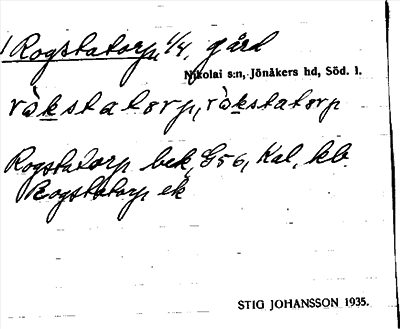 Rogstatorp, 1/4, gård
Nikolai s:n, Jönåkers hd, Söd. l.
råkstatorp, råkstatorp
Rogstatorp bek, G56, Kal, kb.
Rogstatorp ek
STIG JOHANSSON 1935.